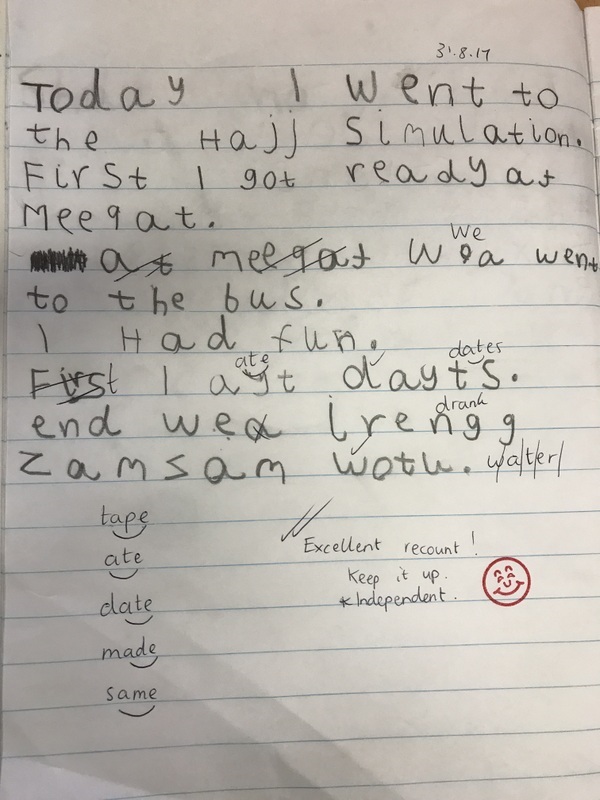 31.8.17
Today I went to
the Hajj Simulation.
First I got ready at
Meeqat.
We
at meeqat Wea went
to the bus.
I Had fun.
ate dates
First I ayt dayts.
drank
end wea irengg
zamsam wotu. wa/t/er/
tape
ate
date
made
same
Excellent recount!
Keep it up.
*Independent.